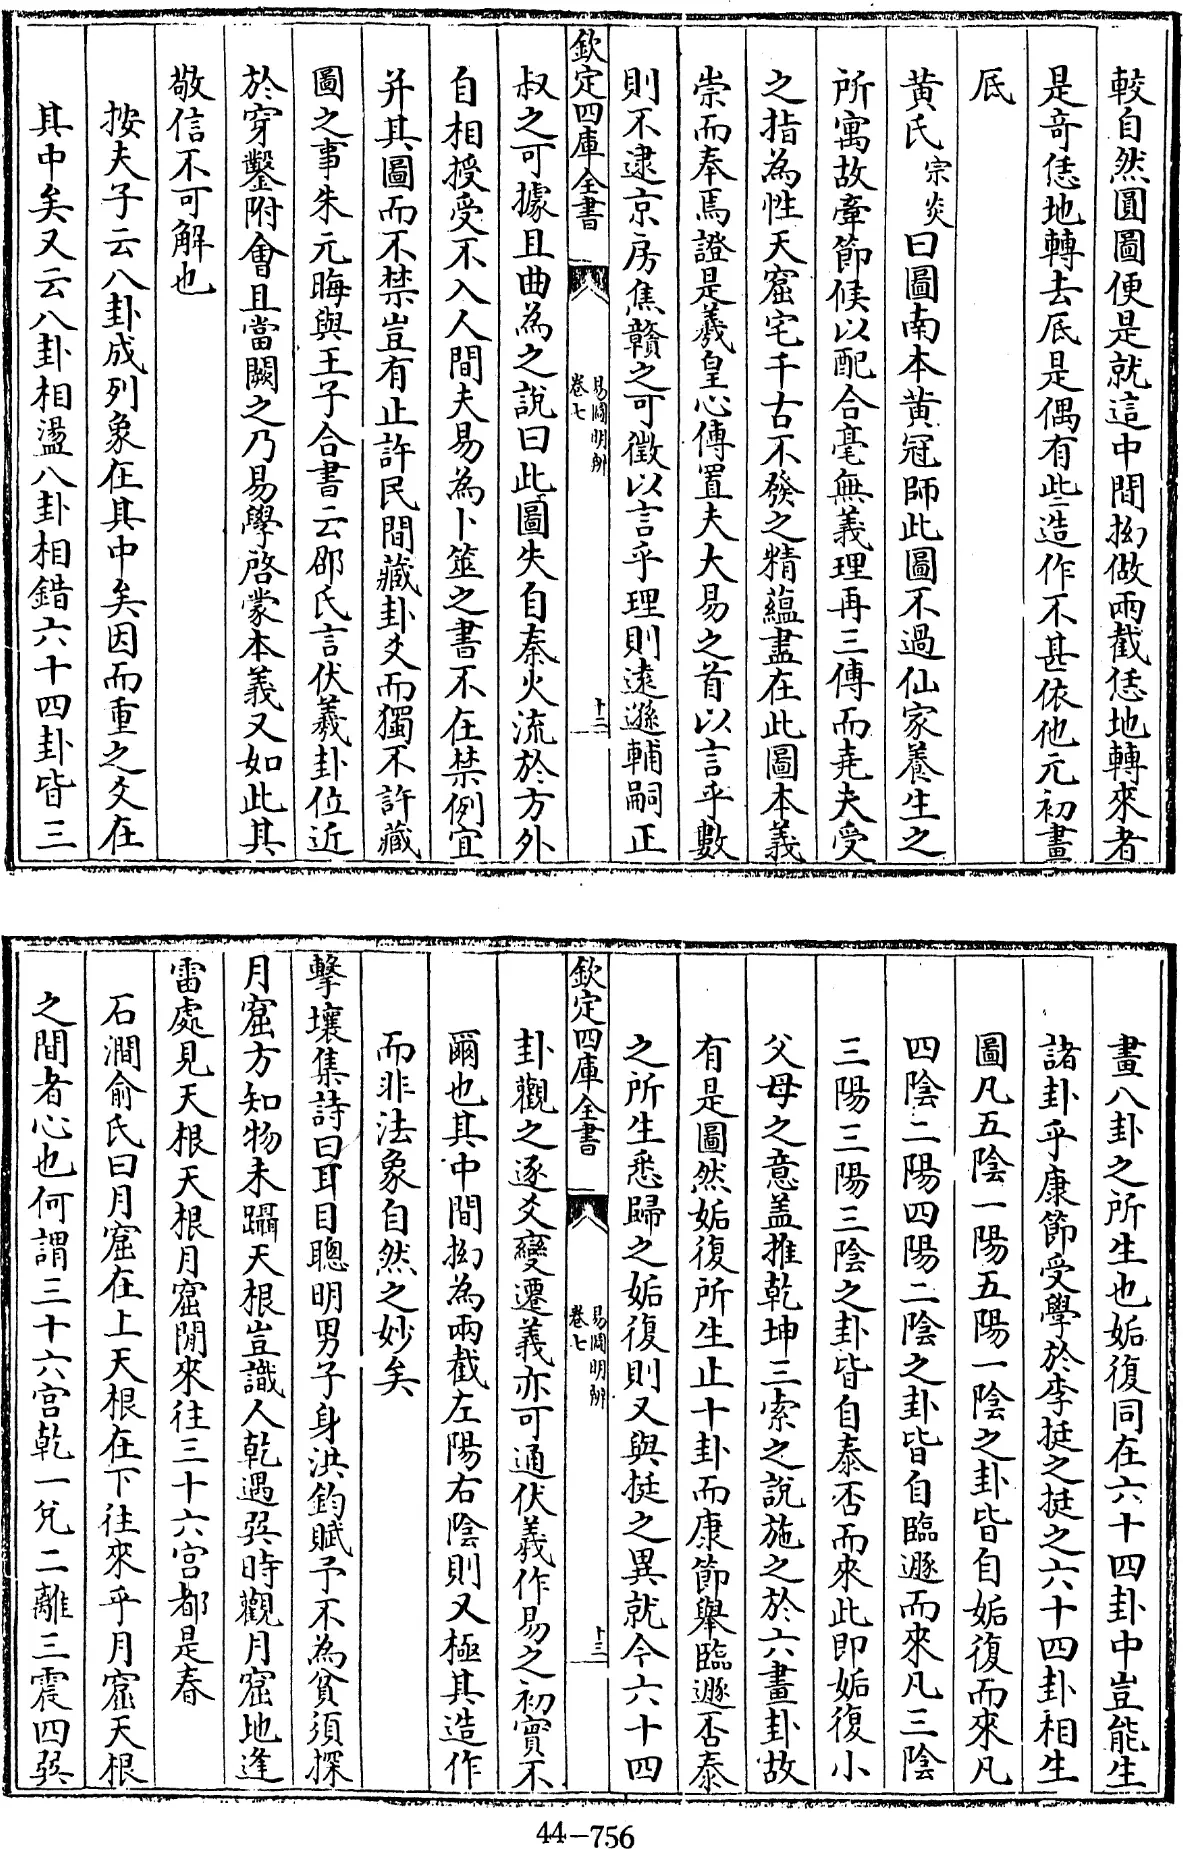 較自然圓圖便是就這中間拗做兩截恁地轉來者
是竒恁地轉去底是偶有些造作不甚依他元初畫
底
黄氏宗炎曰圖南本黄冠師此圖不過仙家養生之
所寓故牽節候以配合毫無義理再三傳而堯夫受
之指為性天窟宅千古不發之精藴盡在此圖本義
崇而奉焉證是羲皇心傳置夫大易之首以言乎數
則不逮京房焦贛之可徴以言乎理則逺遜輔嗣正
欽定四庫全書
易圖明辨
卷七
十二
叔之可據且曲為之説曰此圖失自秦火流於方外
自相授受不入人間夫易為卜筮之書不在禁例宜
并其圖而不禁豈有止許民間藏卦爻而獨不許藏
圖之事朱元晦與王子合書云邵氏言伏羲卦位近
於穿鑿附㑹且當闕之乃易學啓蒙本義又如此其
敬信不可解也
按夫子云八卦成列象在其中矣因而重之爻在
其中矣又云八卦相盪八卦相錯六十四卦皆三
畫八卦之所生也姤復同在六十四卦中豈能生
諸卦乎康節受學於李挺之挺之六十四卦相生
圖凡五陰一陽五陽一陰之卦皆自姤復而來凡
四陰二陽四陽二陰之卦皆自臨遯而來凡三陰
三陽三陽三陰之卦皆自泰否而來此即姤復小
父母之意盖推乾坤三索之説施之於六畫卦故
有是圖然姤復所生止十卦而康節舉臨遯否泰
之所生悉歸之姤復則又與挺之異就令六十四
欽定四庫全書
易圖明辨
卷七
十三
卦觀之逐爻變遷義亦可通伏羲作易之初實不
爾也其中間拗為兩截左陽右陰則又極其造作
而非法象自然之妙矣
擊壤集詩曰耳目聰明男子身洪鈞賦予不為貧須探
月窟方知物未躡天根豈識人乾遇巽時觀月窟地逢
雷處見天根天根月窟閒來往三十六宫都是春
石澗俞氏曰月窟在上天根在下往來乎月窟天根
之間者心也何謂三十六宫乾一兊二離三震四巽
44-756